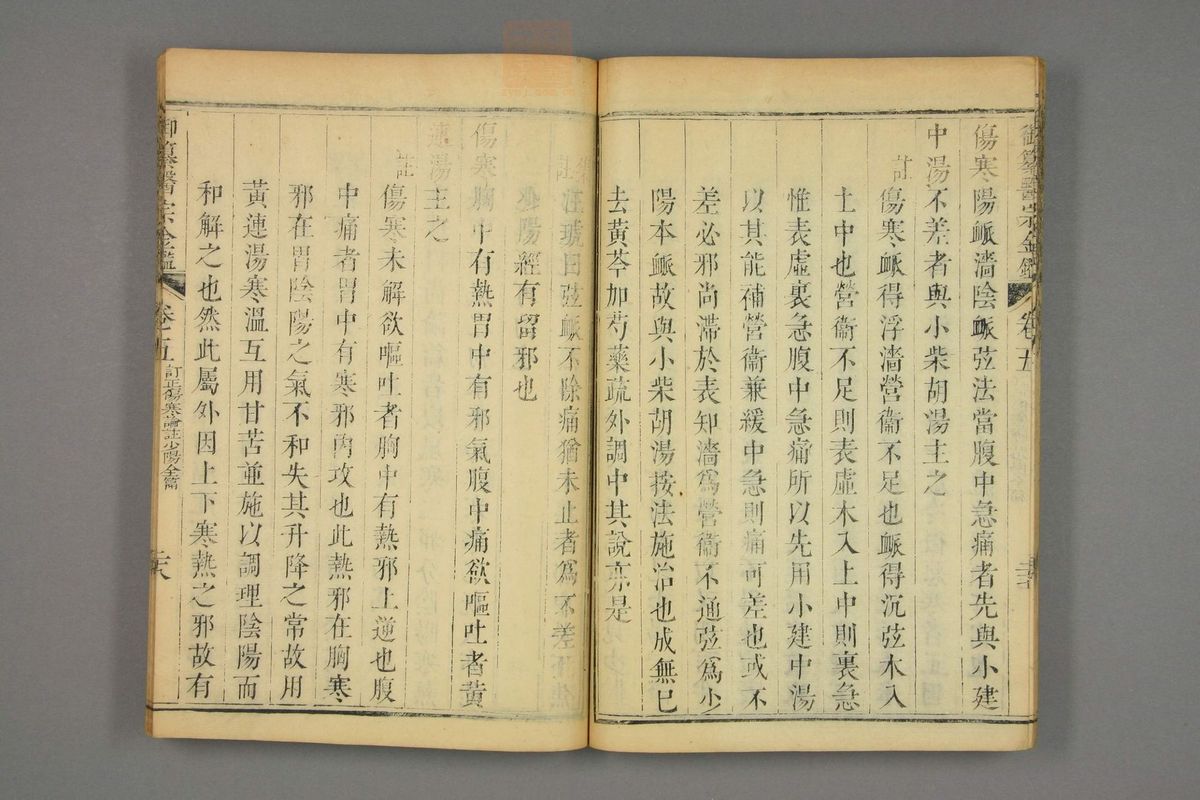 御纂醫宗金鑑 卷五
傷寒陽脈濇陰脈弦法當腹中急痛者先與小建
中湯不差者與小柴胡湯主之
註
傷寒脈得浮濇營衞不足也脈得沉弦木入
土中也營衞不足則表虛木入土中則裏急
惟表虛裏急腹中急痛所以先用小建中湯
以其能補營衞兼緩中急則痛可差也或不
差必邪尚滯於表知濇爲營衞不通弦爲少
陽本脈故與小柴胡湯按法施治也成無已
去黃芩加芍藥疏外調中其說亦是
註汪琥曰弦脈不除痛猶未止者爲不差
陽經有留邪也
傷寒胸中有熱胃中有邪氣腹中痛欲嘔吐者黃
連湯主之
註
傷寒未解欲嘔吐者胸中有熱邪上逆也腹
中痛者胃中有寒邪內攻也此熱邪在胸寒
邪在胃陰陽之氣不和失其升降之常故用
黃連湯寒溫互用甘苦並施以調理陰陽而
和解之也然此屬外因上下寒熱之邪故有
御纂醫宗金鑑 卷五 訂正傷寒論註少陽全篇